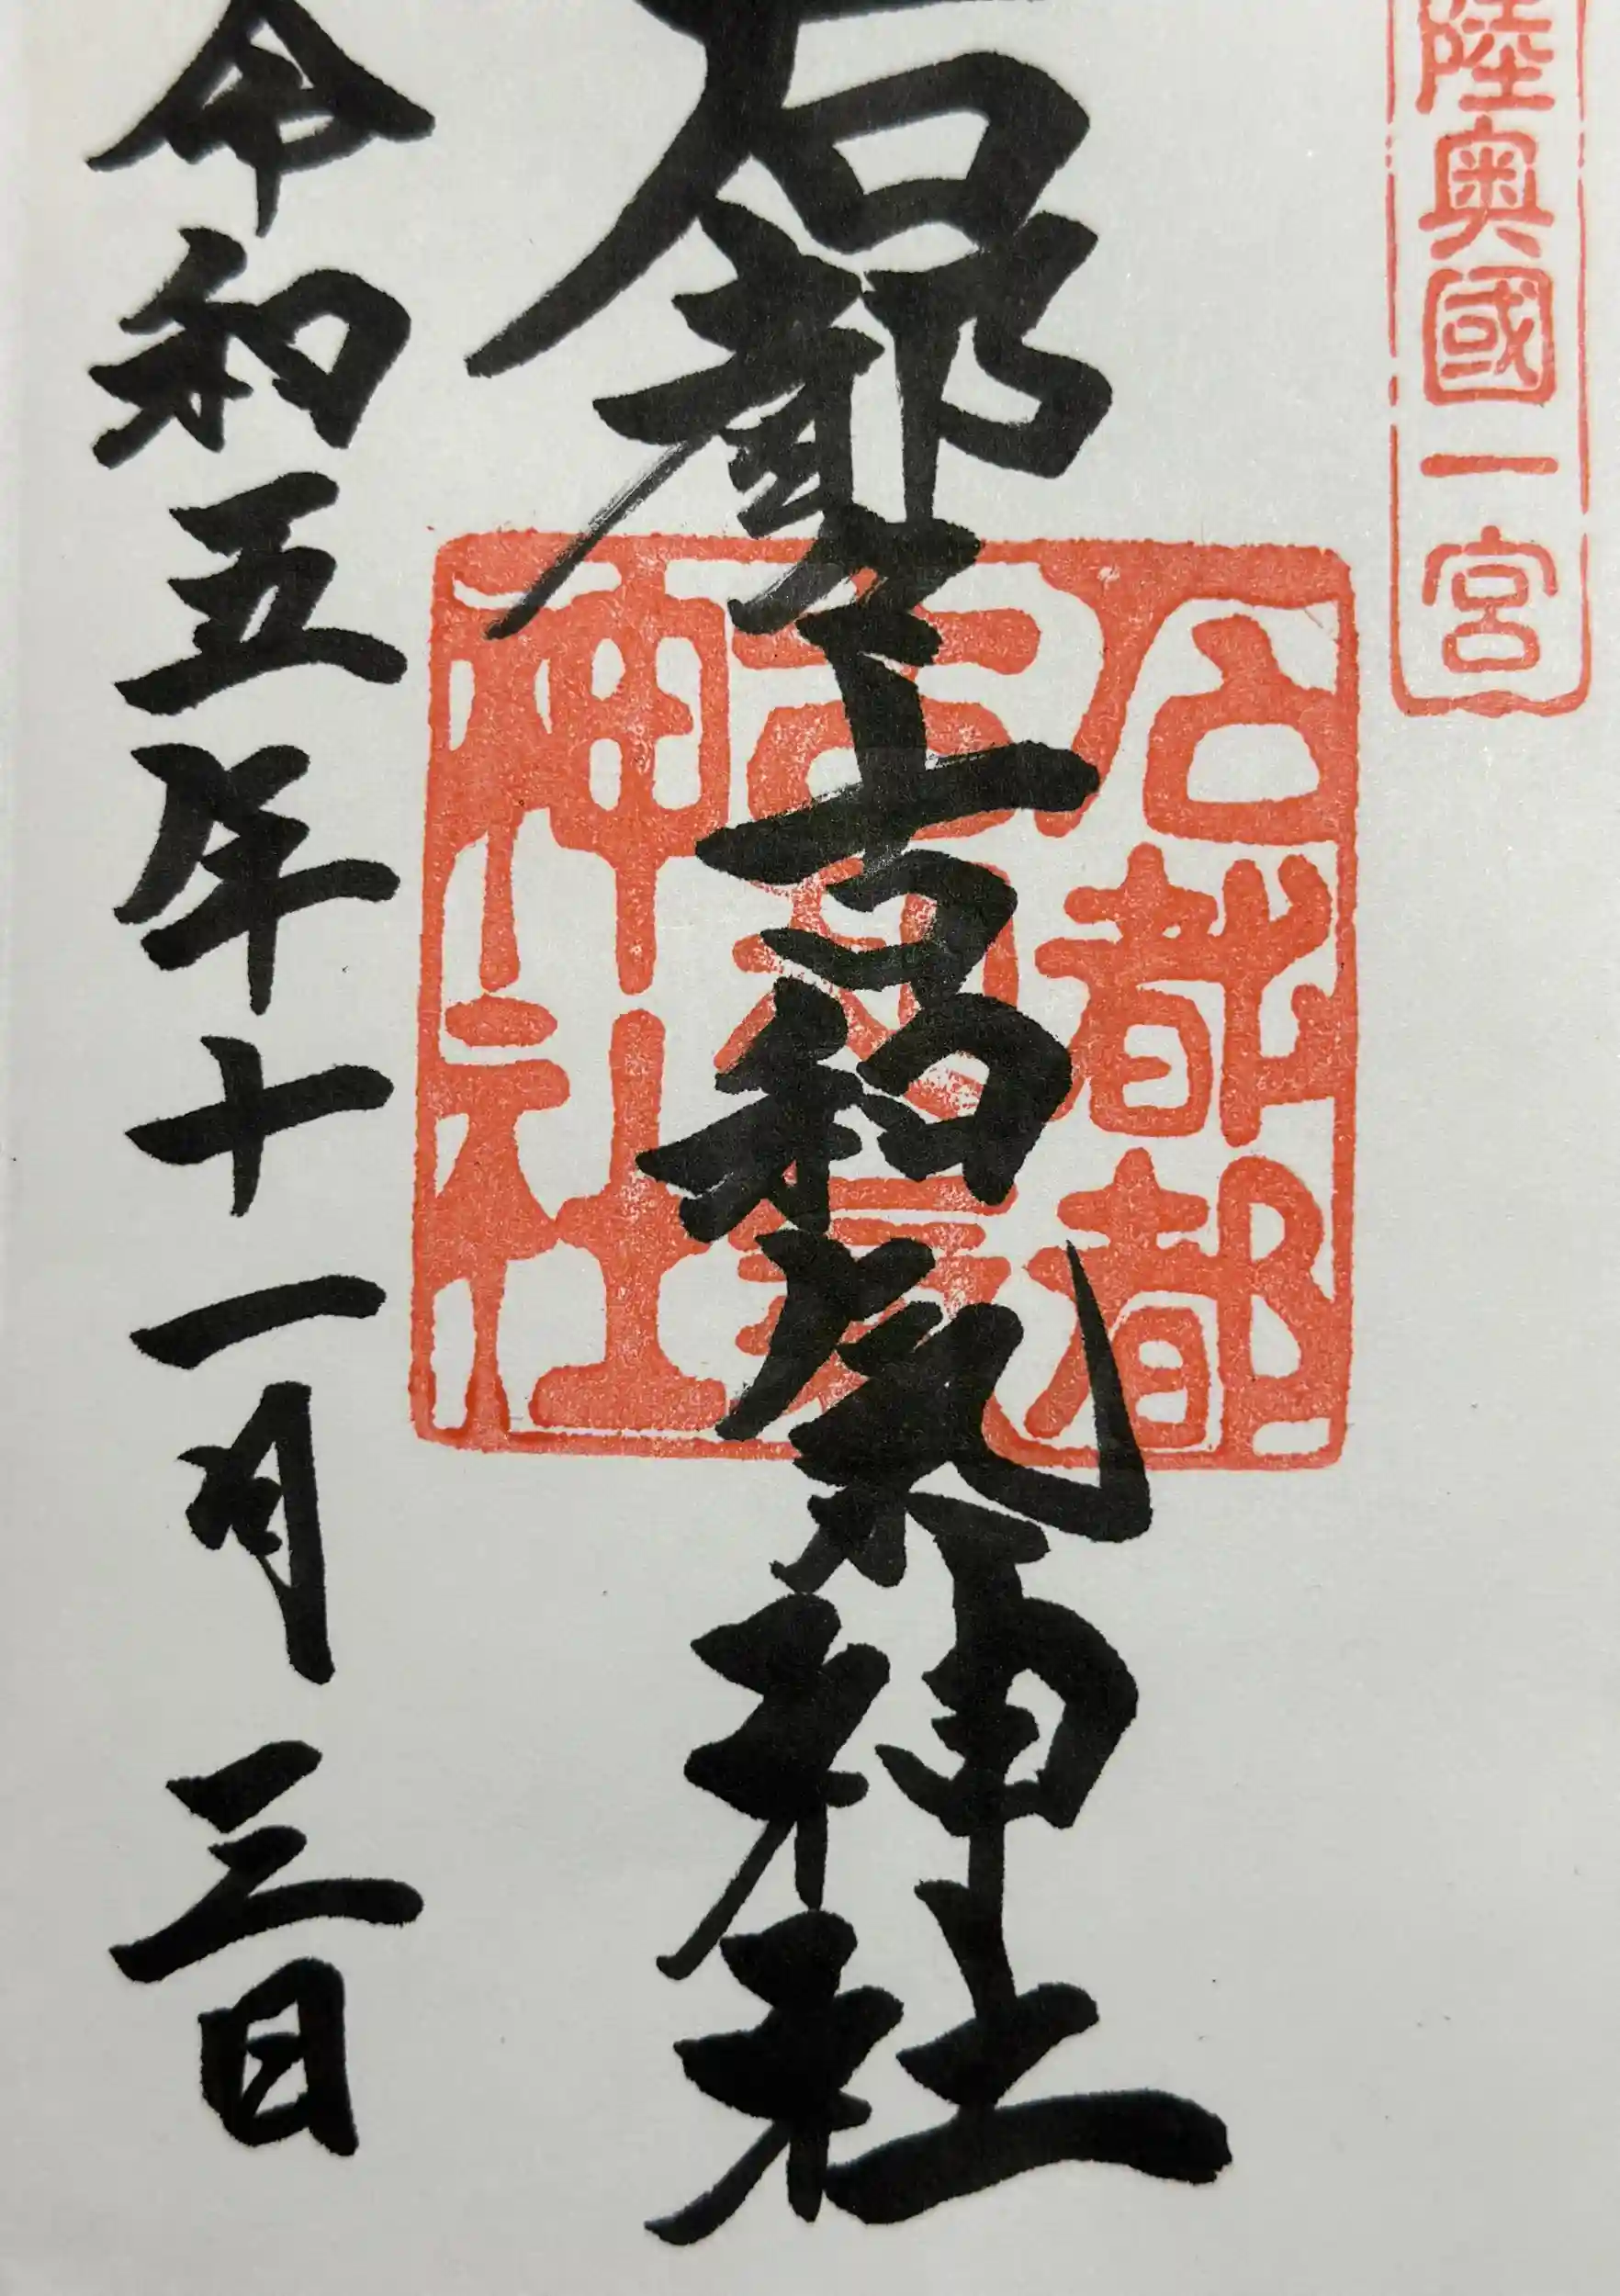 陸奥國一宮
石都々古和氣神社
石都都古和氣神社
令和五年十一月三日